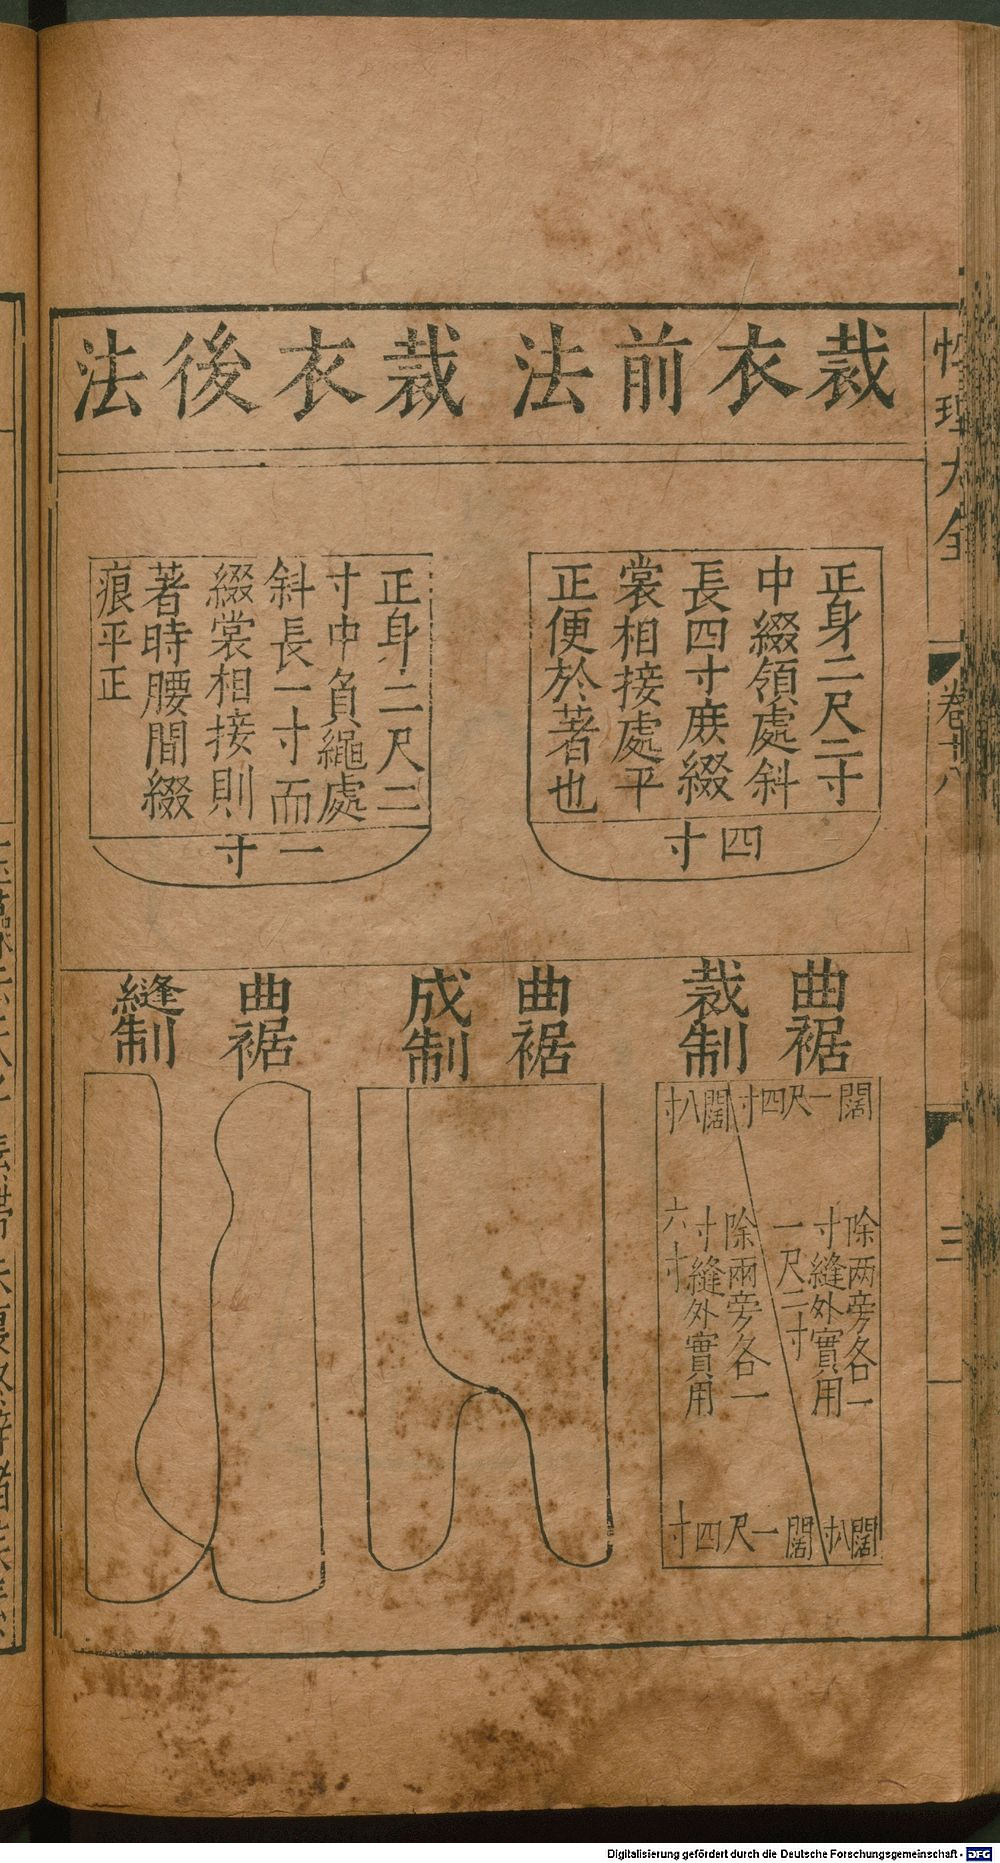 性理大全
卷十八
三
裁衣前法
正身二尺二寸
中綴領處斜
長四寸庻綴
裳相接處平
正便於著也
四寸
裁衣後法
正身二尺二
寸中負繩處
斜長一寸而
綴裳相接則
著時腰間綴
痕平正
一寸
曲裾
裁制
闊一尺四寸
闊八寸
除两旁各一
寸縫外實用
一尺二寸
除兩旁各一
寸縫外實用
六寸
闊八寸
闊一尺四寸
曲裾
成制
曲裾
縫制
Digitalisierung gefördert durch die Deutsche Forschungsgemeinschaft - DFG